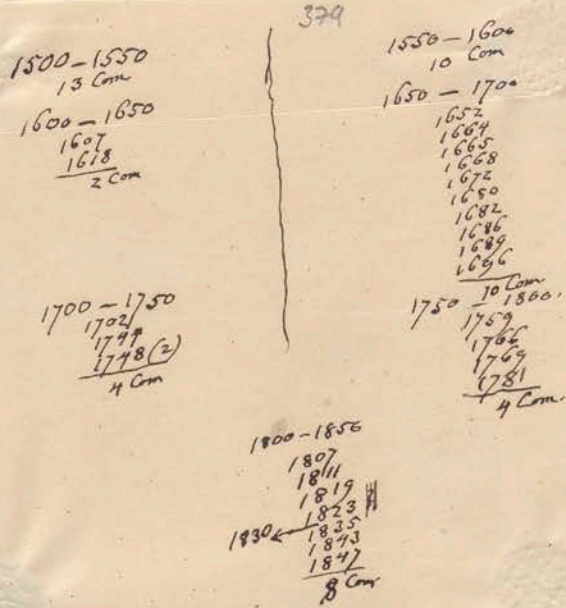 379
1500 – 1550
13 Com
1600 – 1650
1607
1618
2 Com
1700 – 1750
1702
1744
1748 (2)
4 Com
1550 – 1600
10 Com
1650 – 1700
1652
1664
1665
1668
1672
1680
1682
1686
1689
1696
10 Com
1750 – 1800.
1759
1766
1769
1781
4 Com.
1800 – 1856
1807
1811
1819
1823
1830
1835
1843
1847
8 Com